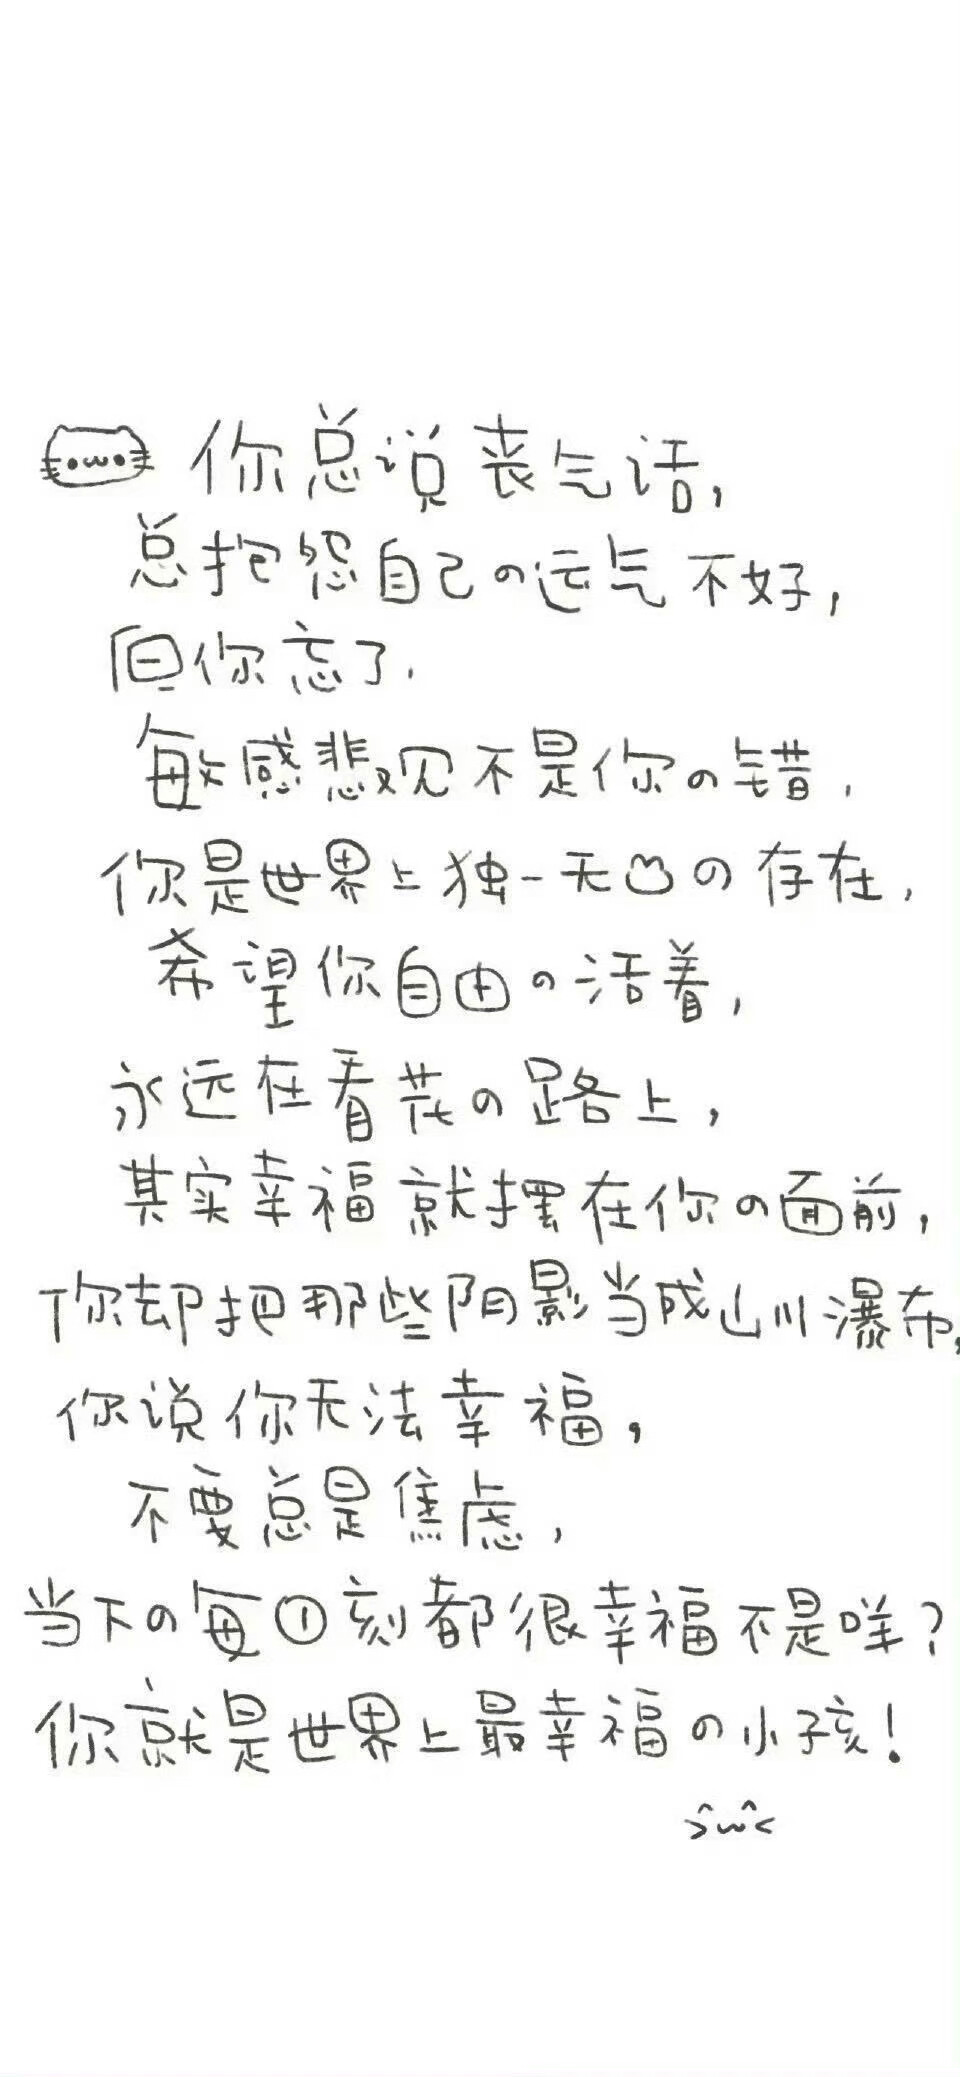 你总说丧气话,
总抱怨自己の运气不好,
但你忘了.
敏感悲观不是你の错,
你是世界上独一无の存在,
希望你自由の活着,
永远在看花の路上,
其实幸福就摆在你の面前,
你却把那些阴影当成山川瀑布,
你说你无法幸福,
不要总是焦虑,
当下の每①刻都很幸福不是咩?
你就是世界上最幸福の小孩!